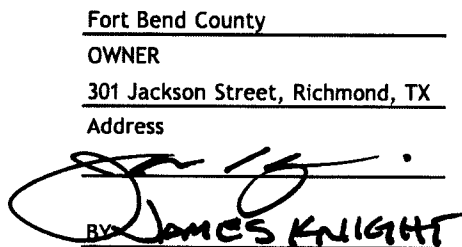 Fort Bend County
OWNER
301 Jackson Street, Richmond, TX
Address
BY JAMES KNIGHT